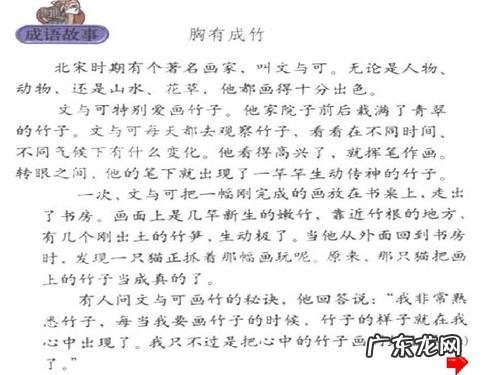 成语故事
胸有成竹
北宋时期有个著名画家，叫文与可。无论是人物、
动物，还是山水、花草，他都画得十分出色。
文与可特别爱画竹子。他家院子前后栽满了青翠
的竹子。文与可每天都去观察竹子，看看在不同时间、
不同气候下有什么变化。他看得高兴了，就挥笔作画。
转眼之间，他的笔下就出现了一竿竿生动传神的竹子。
一次，文与可把一幅刚完成的画放在书桌上，走出
了书房。画面上是几竿新生的嫩竹，靠近竹根的地方，
有几个刚出土的竹笋，生动极了。当他从外面回到书房
时，发现一只猫正抓着那幅画玩呢。原来，那只猫把画
上的竹子当成真的了。
有人问文与可画竹的秘诀，他回答说：“我非常熟
悉竹子，每当我要画竹子的时候，竹子的样子就在我
心中出现了。我只不过是把心中的竹子画
了。”
广东龙网